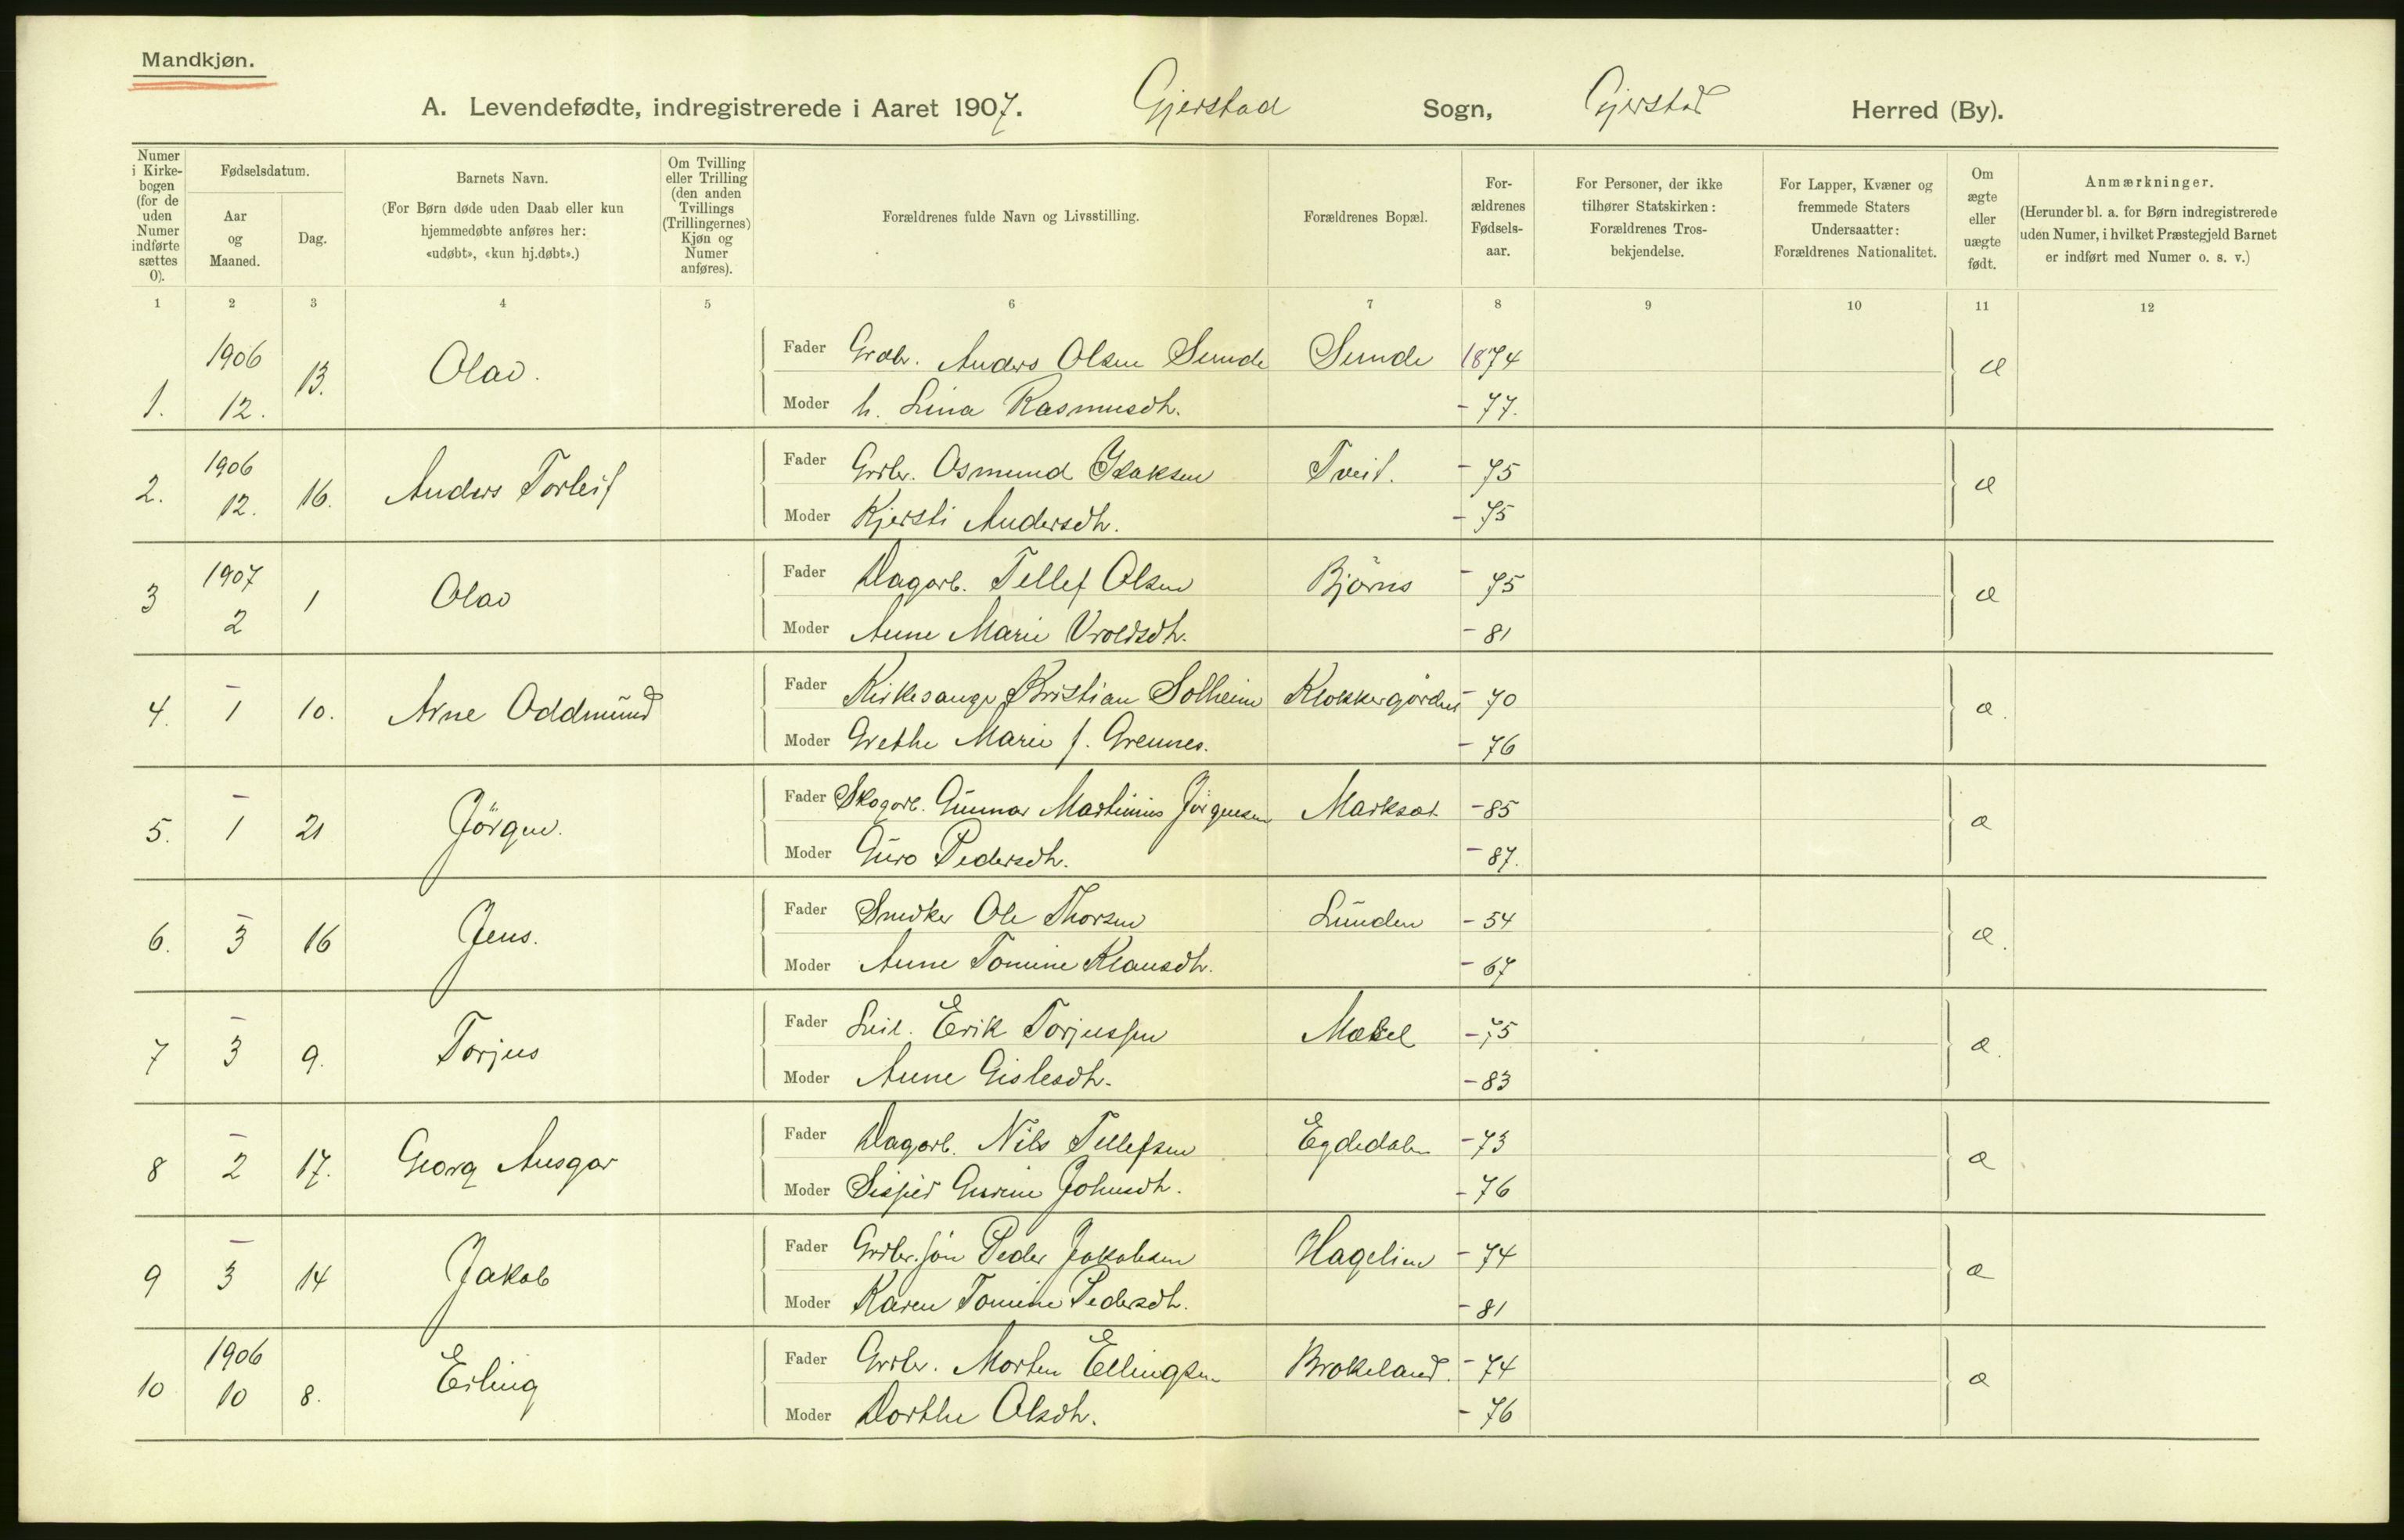 Mandkjøn.
A. Levendefødte, indregistrerede i Aaret 1907. Gjerstad Sogn, Gjerstad Herred (By).
Numer i Kirkebogen (for de uden Numer indførte sættes 0).
Fødselsdatum.
Aar og Maaned.
Dag.
Barnets Navn.
(For Børn døde uden Daab eller kun hjemmedøbte anføres her: «udøbt», «kun hj.døbt».)
Om Tvilling eller Trilling (den anden Tvillings (Trillingernes) Kjøn og Numer anføres).
Forældrenes fulde Navn og Livsstilling.
Forældrenes Bopæl.
For-ældrenes Fødsels-aar.
For Personer, der ikke tilhører Statskirken: Forældrenes Tros-bekjendelse.
For Lapper, Kvæner og fremmede Staters Undersaatter: Forældrenes Nationalitet.
Om ægte eller uægte født.
Anmærkninger.
(Herunder bl. a. for Børn indregistrerede uden Numer, i hvilket Præstegjeld Barnet er indført med Numer o. s. v.)
1 2 3 4 5 6 7 8 9 10 11 12
1. 1906 12. 13. Olav. Fader Grdbr. Anders Olsen Sunde Sunde 1874 æ
Moder h. Lina Rasmusdtr. - 77.
2. 1906 12. 16. Anders Torleif Fader Grdbr. Osmund Isaksen Tveit. - 75 æ
Moder Kjersti Andersdtr. - 75
3 1907 2 1 Olav Fader Dagarb. Tellef Olsen Bjørns - 75 æ
Moder Anne Marie Vroldsdtr. - 81
4. - 1 10. Arne Oddmund Fader Kirkesanger Kristian Solheim Klokkergården - 70 æ.
Moder Grethe Marie f. Grennes. - 76
5. - 1 21 Jörgen. Fader Skogarb. Gunnar Martinius Jörgensen Marksæt - 85 æ
Moder Guro Pedersdtr. - 87.
6. - 3 16 Jens. Fader Snedker Ole Thorsen Lunden - 54 æ.
Moder Anne Tomine Klausdtr. - 67
7 - 3 9. Torjus Fader Leil. Erik Torjussen - 75 æ.
Moder Anne Gislesdtr. - 83
8 - 2 17. Georg Ansgar Fader Dagarb. Nils Tellefsen Egdedalen - 73 æ
Moder Johnsdtr. - 76
9 - 3 14 Jakob Fader Grdbr.sön Peder Jakobsen Hagelien - 74 æ
Moder Karen Tomine Pedersdtr. - 81
10 1906 10 8. Erling Fader Grdbr. Morten Ellingsen Brokeland. - 74 æ
Moder Dorthe Olsdtr. - 76